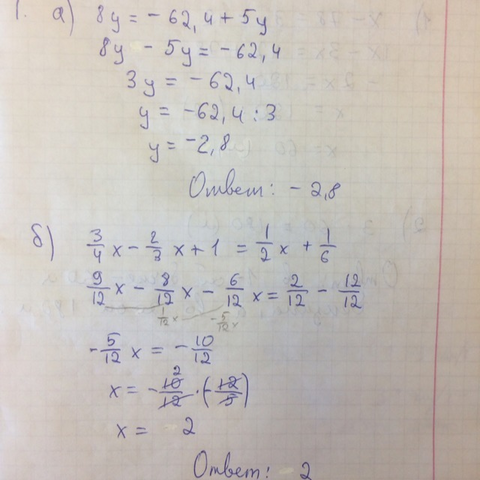 1. а) 8y = -62,4 + 5y
8y - 5y = -62,4
3y = -62,4
y = -62,4 : 3
y = -2,8
Ответ: -2,8
б) 3/4 x - 2/3 x + 1 = 1/2 x + 1/6
9/12 x - 8/12 x - 6/12 x = 2/12 - 12/12
1/12 x - 5/12 x
-5/12 x = -10/12
x = -10/12 · (-12/5) 2
x = 2
Ответ: 2